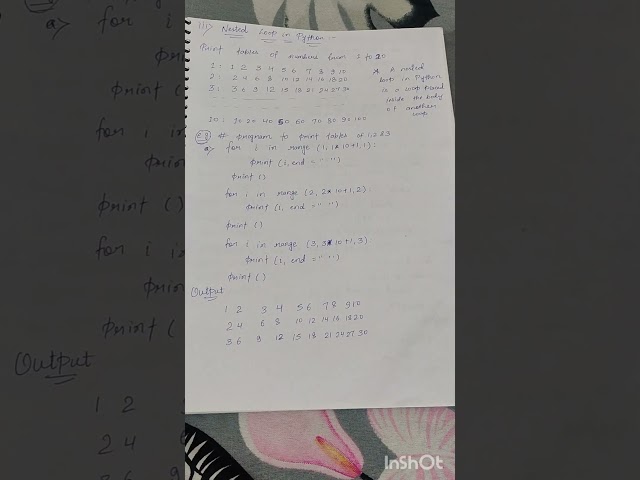 iii) Nested Loop in Python :-
Print tables of numbers from 1 to 20
1: 1 2 3 4 5 6 7 8 9 10
2: 2 4 6 8 10 12 14 16 18 20
3: 3 6 9 12 15 18 21 24 27 30
* A nested
loop in Python
is a loop placed
inside the body
of another
loop
10: 10 20 40 50 60 70 80 90 100
e.g # Program to print tables of 1,2 & 3
a) for i in range (1, 1*10+1,1):
print (i, end = " ")
print ()
for i in range (2, 2*10+1,2):
print (i, end = " ")
print ()
for i in range (3, 3*10+1,3)
print (i, end = " ")
print ()
Output
1 2 3 4 5 6 7 8 9 10
2 4 6 8 10 12 14 16 18 20
3 6 9 12 15 18 21 24 27 30
InShOt